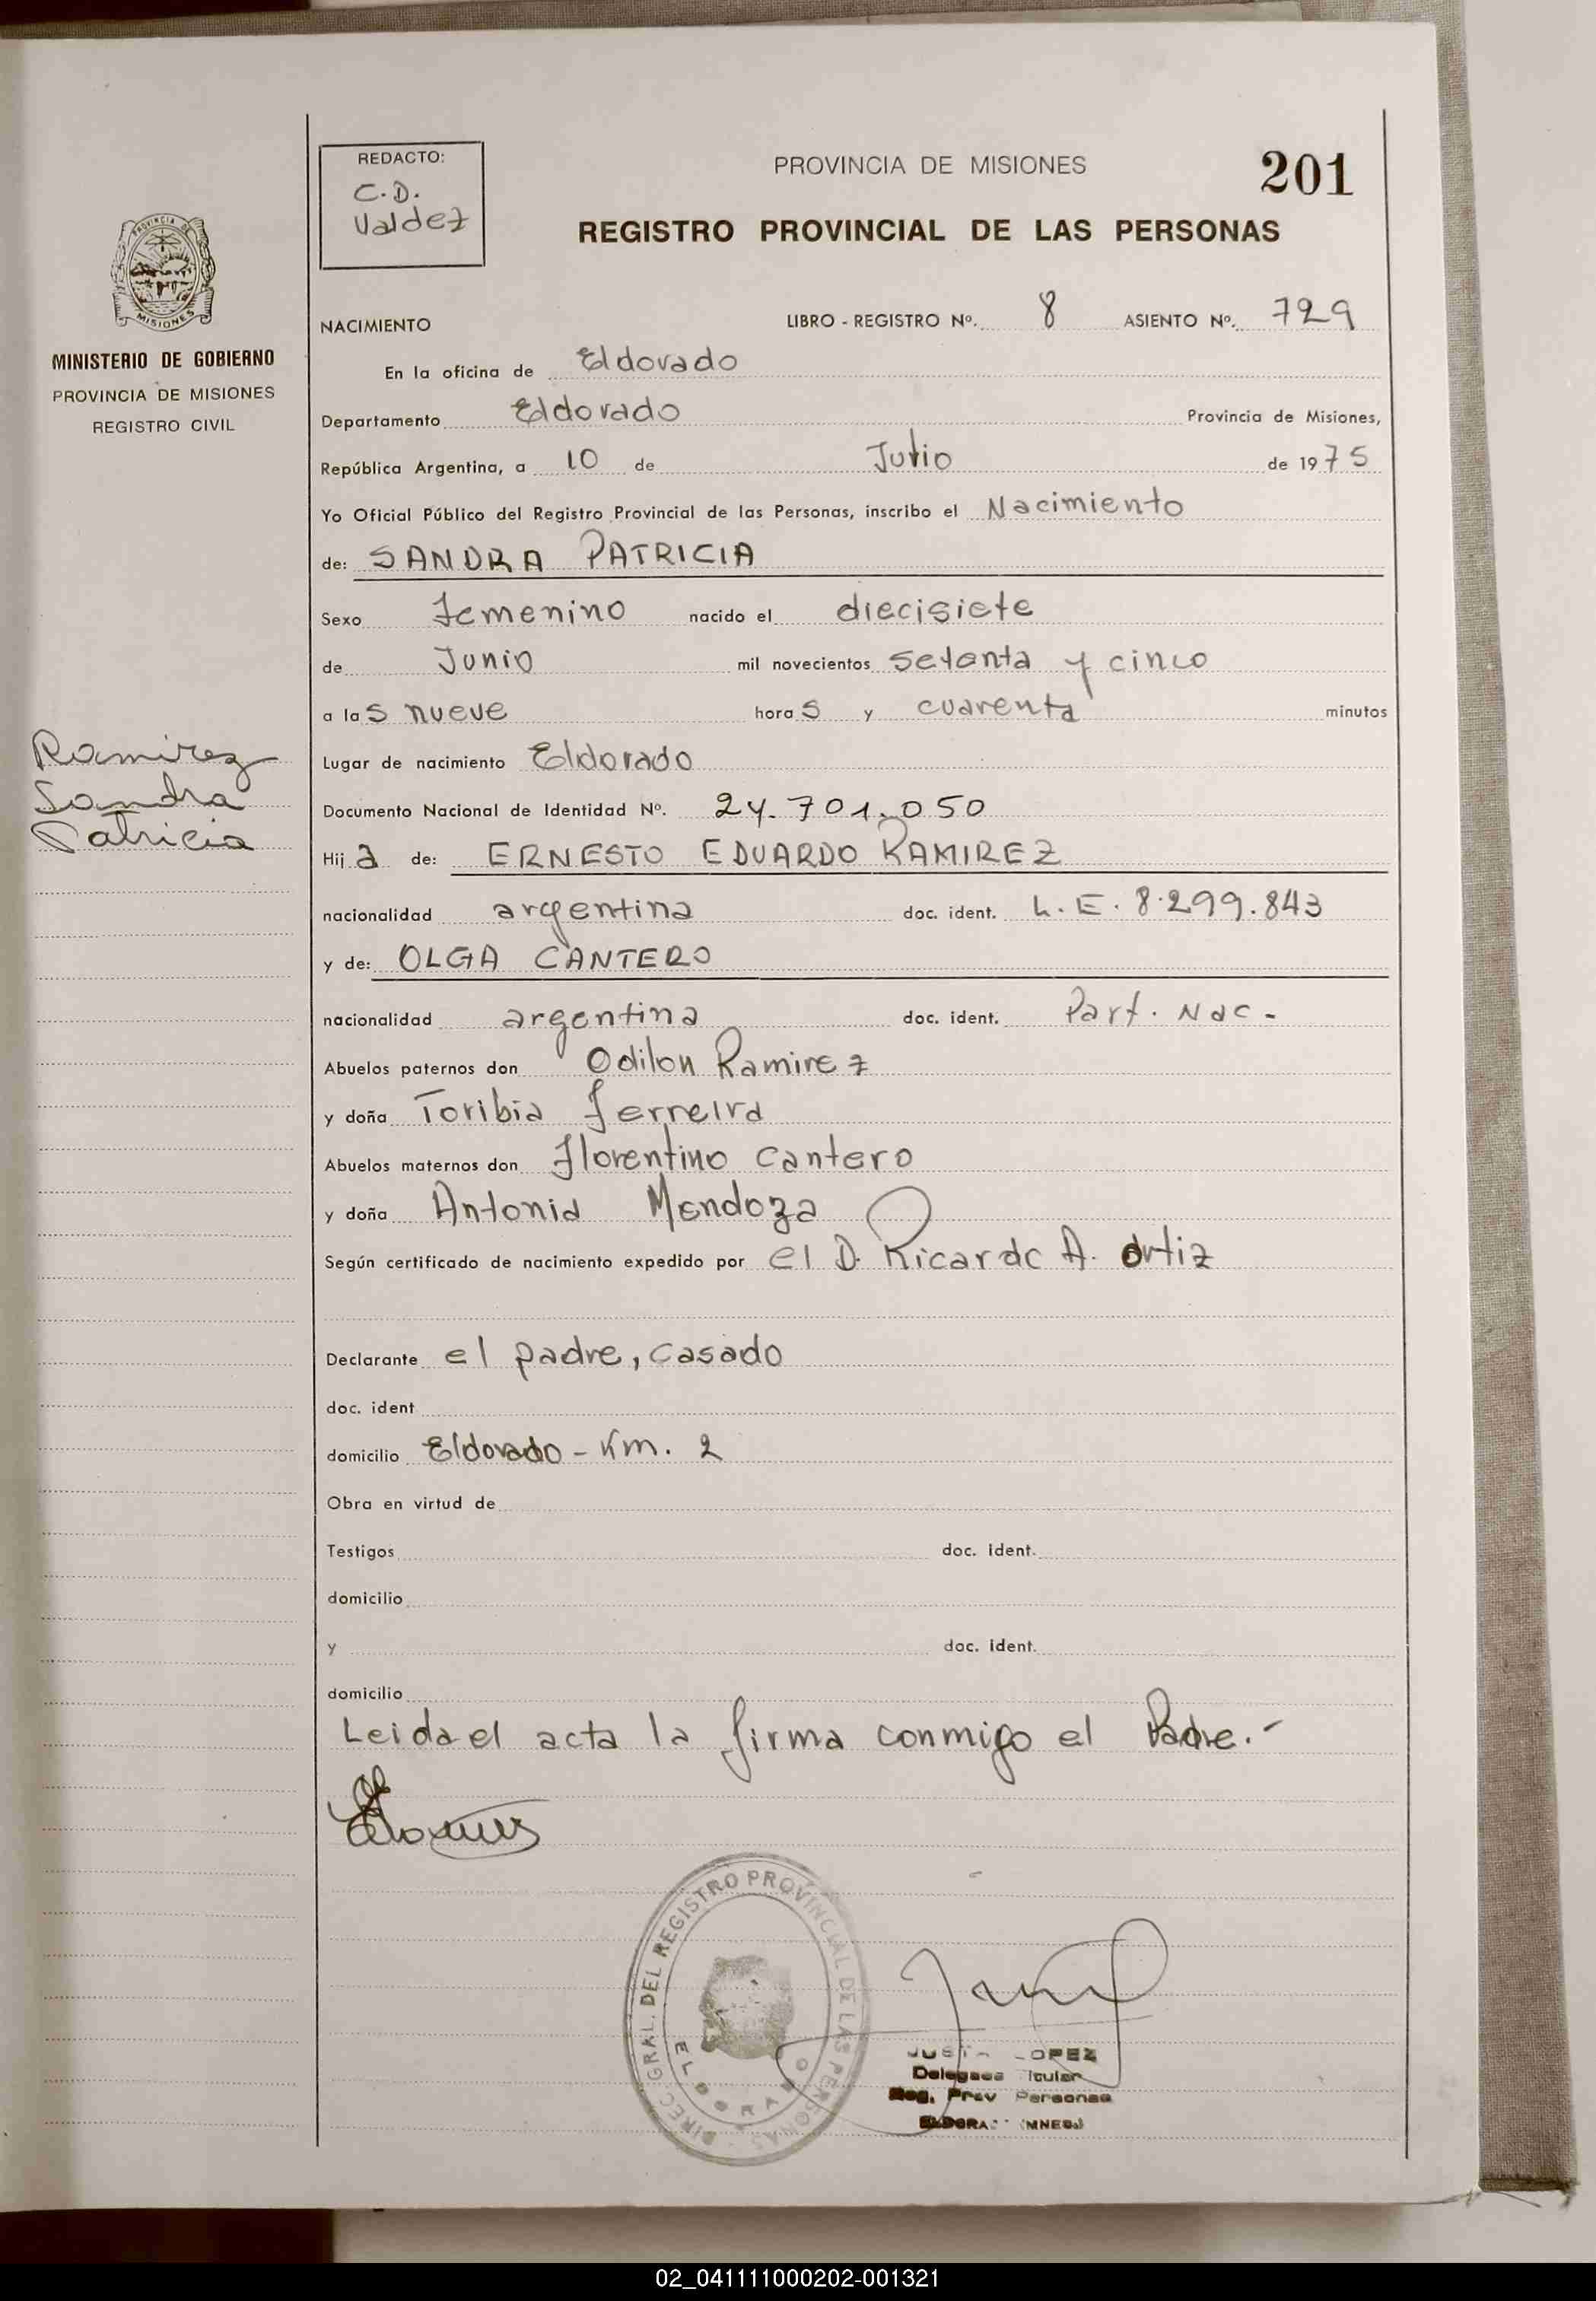 REDACTO:
C.D.
Valdez
PROVINCIA DE MISIONES
201
REGISTRO PROVINCIAL DE LAS PERSONAS
PROVINCIA DE
MISIONES
MINISTERIO DE GOBIERNO
PROVINCIA DE MISIONES
REGISTRO CIVIL
NACIMIENTO
LIBRO - REGISTRO Nº. 8 ASIENTO Nº. 729
En la oficina de Eldorado
Departamento Eldorado Provincia de Misiones,
República Argentina, a 10 de Julio de 1975
Yo Oficial Público del Registro Provincial de las Personas, inscribo el Nacimiento
de: SANDRA PATRICIA
Sexo Femenino nacido el diecisiete
de Junio mil novecientos setenta y cinco
a las nueve horas y cuarenta minutos
Ramirez
Sandra
Patricia
Lugar de nacimiento Eldorado
Documento Nacional de Identidad Nº. 24.701.050
Hija de: ERNESTO EDUARDO RAMIREZ
nacionalidad argentina doc. ident. L.E. 8.299.843
y de: OLGA CANTERO
nacionalidad argentina doc. ident. Part. Nac.-
Abuelos paternos don Odilon Ramirez
y doña Toribia Ferreira
Abuelos maternos don Florentino Cantero
y doña Antonia Mendoza
Según certificado de nacimiento expedido por el D. Ricardo A. Ortiz
Declarante el padre, casado
doc. ident
domicilio Eldorado - Km. 2
Obra en virtud de
Testigos doc. ident.
domicilio
y doc. ident.
domicilio
Leida el acta la firma conmigo el Padre.-
DIREC. GRAL. DEL REGISTRO PROVINCIAL DE LAS PERSONAS
ELDORADO
LOPEZ
Reg. Prov Personas
02_041111000202-001321